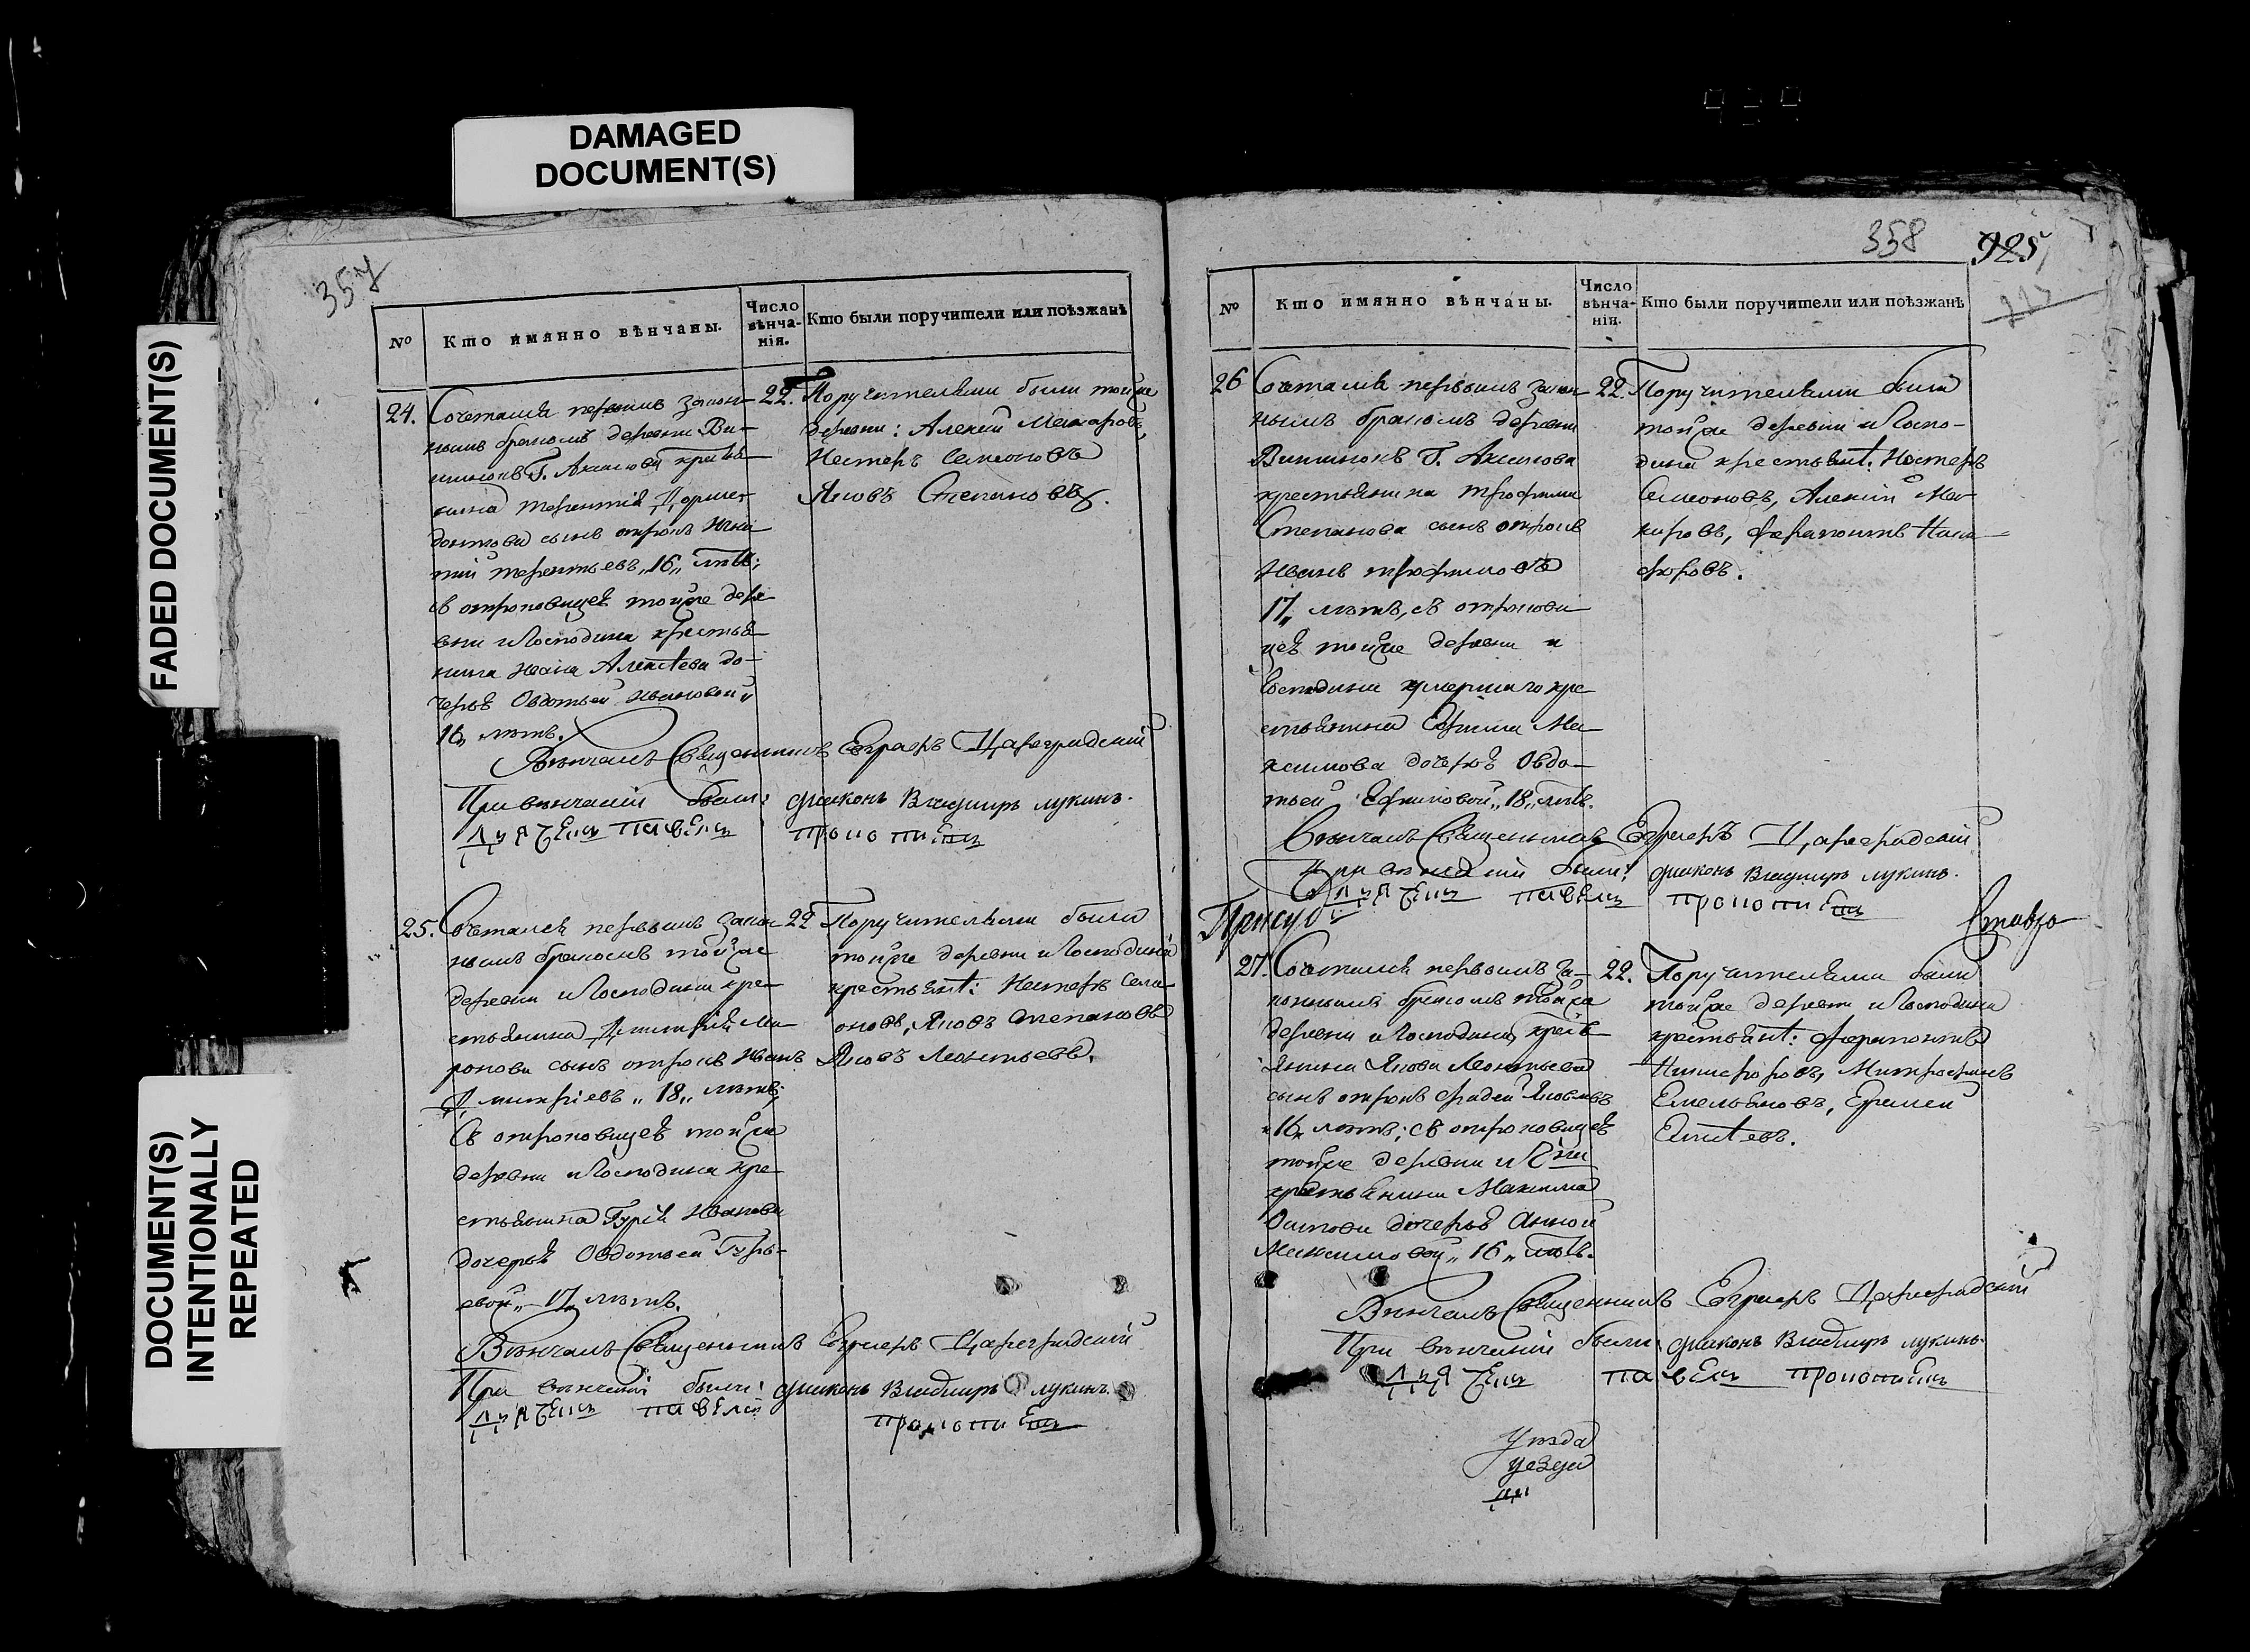 DAMAGED
DOCUMENT(S)
FADED DOCUMENT(S)
DOCUMENT(S)
INTENTIONALLY
REPEATED
357
№
Кто имянно вѣнчаны.
Число
вѣнча-
нія.
Кто были поручители или поѣзжанѣ
24.
Сочетался первымъ закон
нымъ бракомъ деревни Ви-
Г. Акимова кресть
янина Терентія
сынъ отрокъ Игна
тій Терентьевъ „16„ лѣтъ;
съ отроковицей тойже дере
вни и Господина крестья
нина Ивана Алексѣева до-
черью Овдотьей Ивановой „
16„ лѣтъ.
22.
Поручительми были тойже
деревни: Алексей Макаровъ,
Нестеръ Семеновъ
Яковъ Степановъ.
Вѣнчалъ Священникъ Евграфъ Цареградский
При вѣнчаніи были: диаконъ Владимиръ лукинъ.
павелъ
25.
Сочетался первымъ закон
нымъ бракомъ тойже
деревни и Господина кре
стьянина Дмитрія Ми
ронова сынъ отрокъ Иванъ
Дмитріевъ „18„ лѣтъ;
Съ отроковицей тойже
деревни и Господина кре
стьянина Гурія Иванова
дочерью Овдотьей Гурь-
евой „17„ лѣтъ.
22
Поручительми были
тойже деревни и Господина
крестьянѣ: Нестеръ Семе
оновъ, Яковъ Степановъ
Яковъ Леонтьевъ.
Вѣнчалъ Священникъ Евграфъ Цареградский
При вѣнчаніи были: диаконъ Владимиръ лукинъ.
павелъ
358
925
№
Кто имянно вѣнчаны.
Число
вѣнча-
нія.
Кто были поручители или поѣзжанѣ
26
Сочетался первымъ закон
нымъ бракомъ деревни
Г. Акимова
крестьянина Трофима
Степанова сынъ отрокъ
Иванъ Трофимовъ
17„ лѣтъ, съ отрокови
цей тойже деревни и
Господина умершаго кре
стьянина Ефима Ма
ксимова дочерью Овдо-
тьей Ефимовой „18„ лѣтъ.
22.
Поручительми были
тойже деревни и Госпо-
дина крестьянѣ: Нестеръ
Семеоновъ, Алексей Ма
каровъ, Ферапонтъ Ники
форовъ.
Вѣнчалъ Священникъ Евграфъ Цареградский
При вѣнчаніи были: диаконъ Владимиръ лукинъ.
павелъ
27.
Сочетался первымъ за-
коннымъ бракомъ тойже
деревни и Господина кресть
янина Якова Леонтьева
сынъ отрокъ Фадей Яковлевъ
„16„ лѣтъ; съ отроковицей
тойже деревни и
крестьянина Максима
дочерью Анной
Максимовой „16„ лѣтъ.
22.
Поручительми были
тойже деревни и Господина
крестьянѣ: Ферапонтъ
Никифоровъ, Митрофанъ
Емельяновъ, Еремей
Вѣнчалъ Священникъ Евграфъ Цареградский
При вѣнчаніи были: диаконъ Владимиръ лукинъ.
павелъ